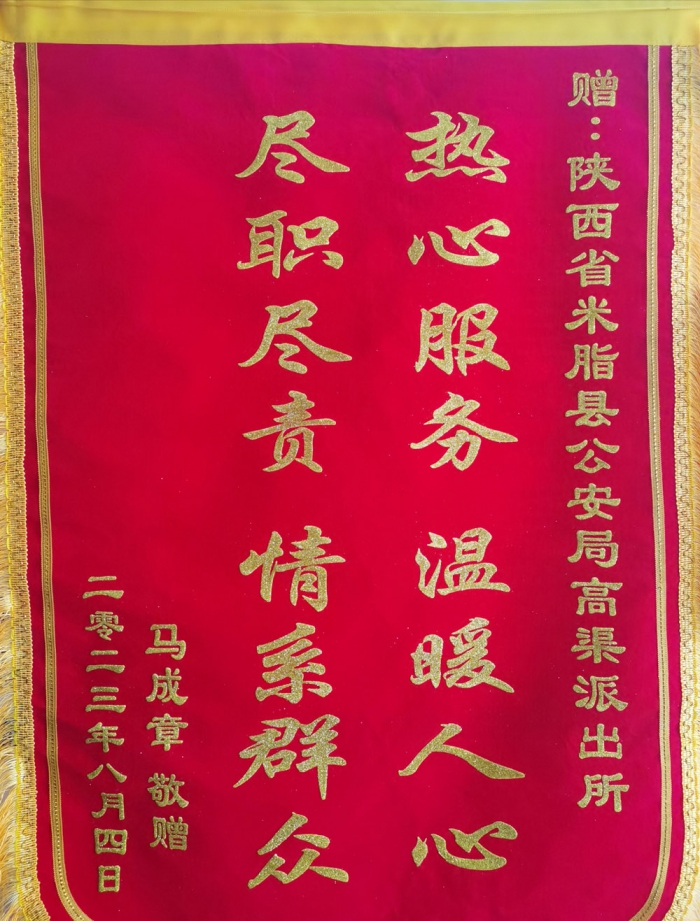 赠：陕西省米脂县公安局高渠派出所
热心服务 温暖人心
尽职尽责 情系群众
马成章 敬赠
二零二三年八月四日